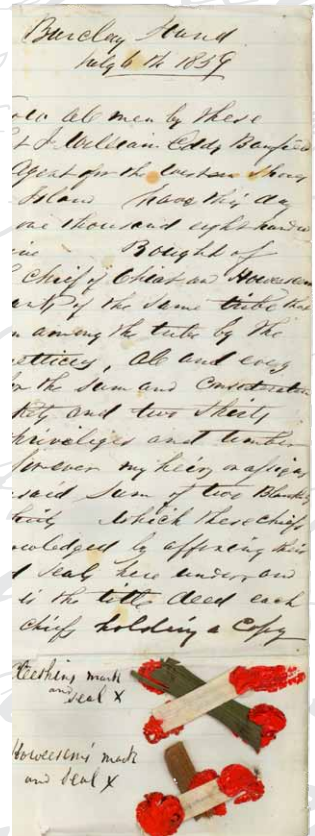 Barclay Sound
July 6th 1859
all men by these
I William Eddy Banfield
Agent for the western shores
Island have this day
one thousand eight hundred
Bought of
Chief of Ohiat an Howeesem
of the same tribe
among the tribe by the
all and every
the sum and consideration
and two Shirts
privileges and timber
forever my heirs or assigns
said sum of two Blankets
which these chiefs
by affixing their
Seals here under and
is the title deed each
chief holding a Copy
mark
and seal X
Howeesem's mark
and seal X